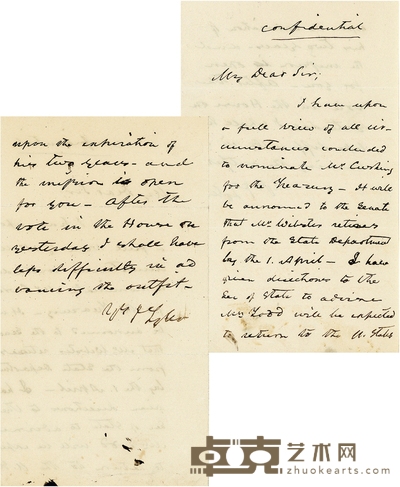 Confidential
My Dear Sir;
I have upon
a full view of all cir-
cumstances concluded
to nominate Mr. Cushing
for the Treasury - It will
be announced to the Senate
that Mr. Webster retires
from the State Department
by the 1. April - I have
given directions to the
Sec of State to advise
Mr Todd will be expected
to return to the U. States
upon the expiration of
his two years - and
the mission is open
for you - After the
vote in the House on
yesterday I shall have
less difficulty in ad
vancing the outfit -
Yrs J Tyler
卓克艺术网
zhuokearts.com